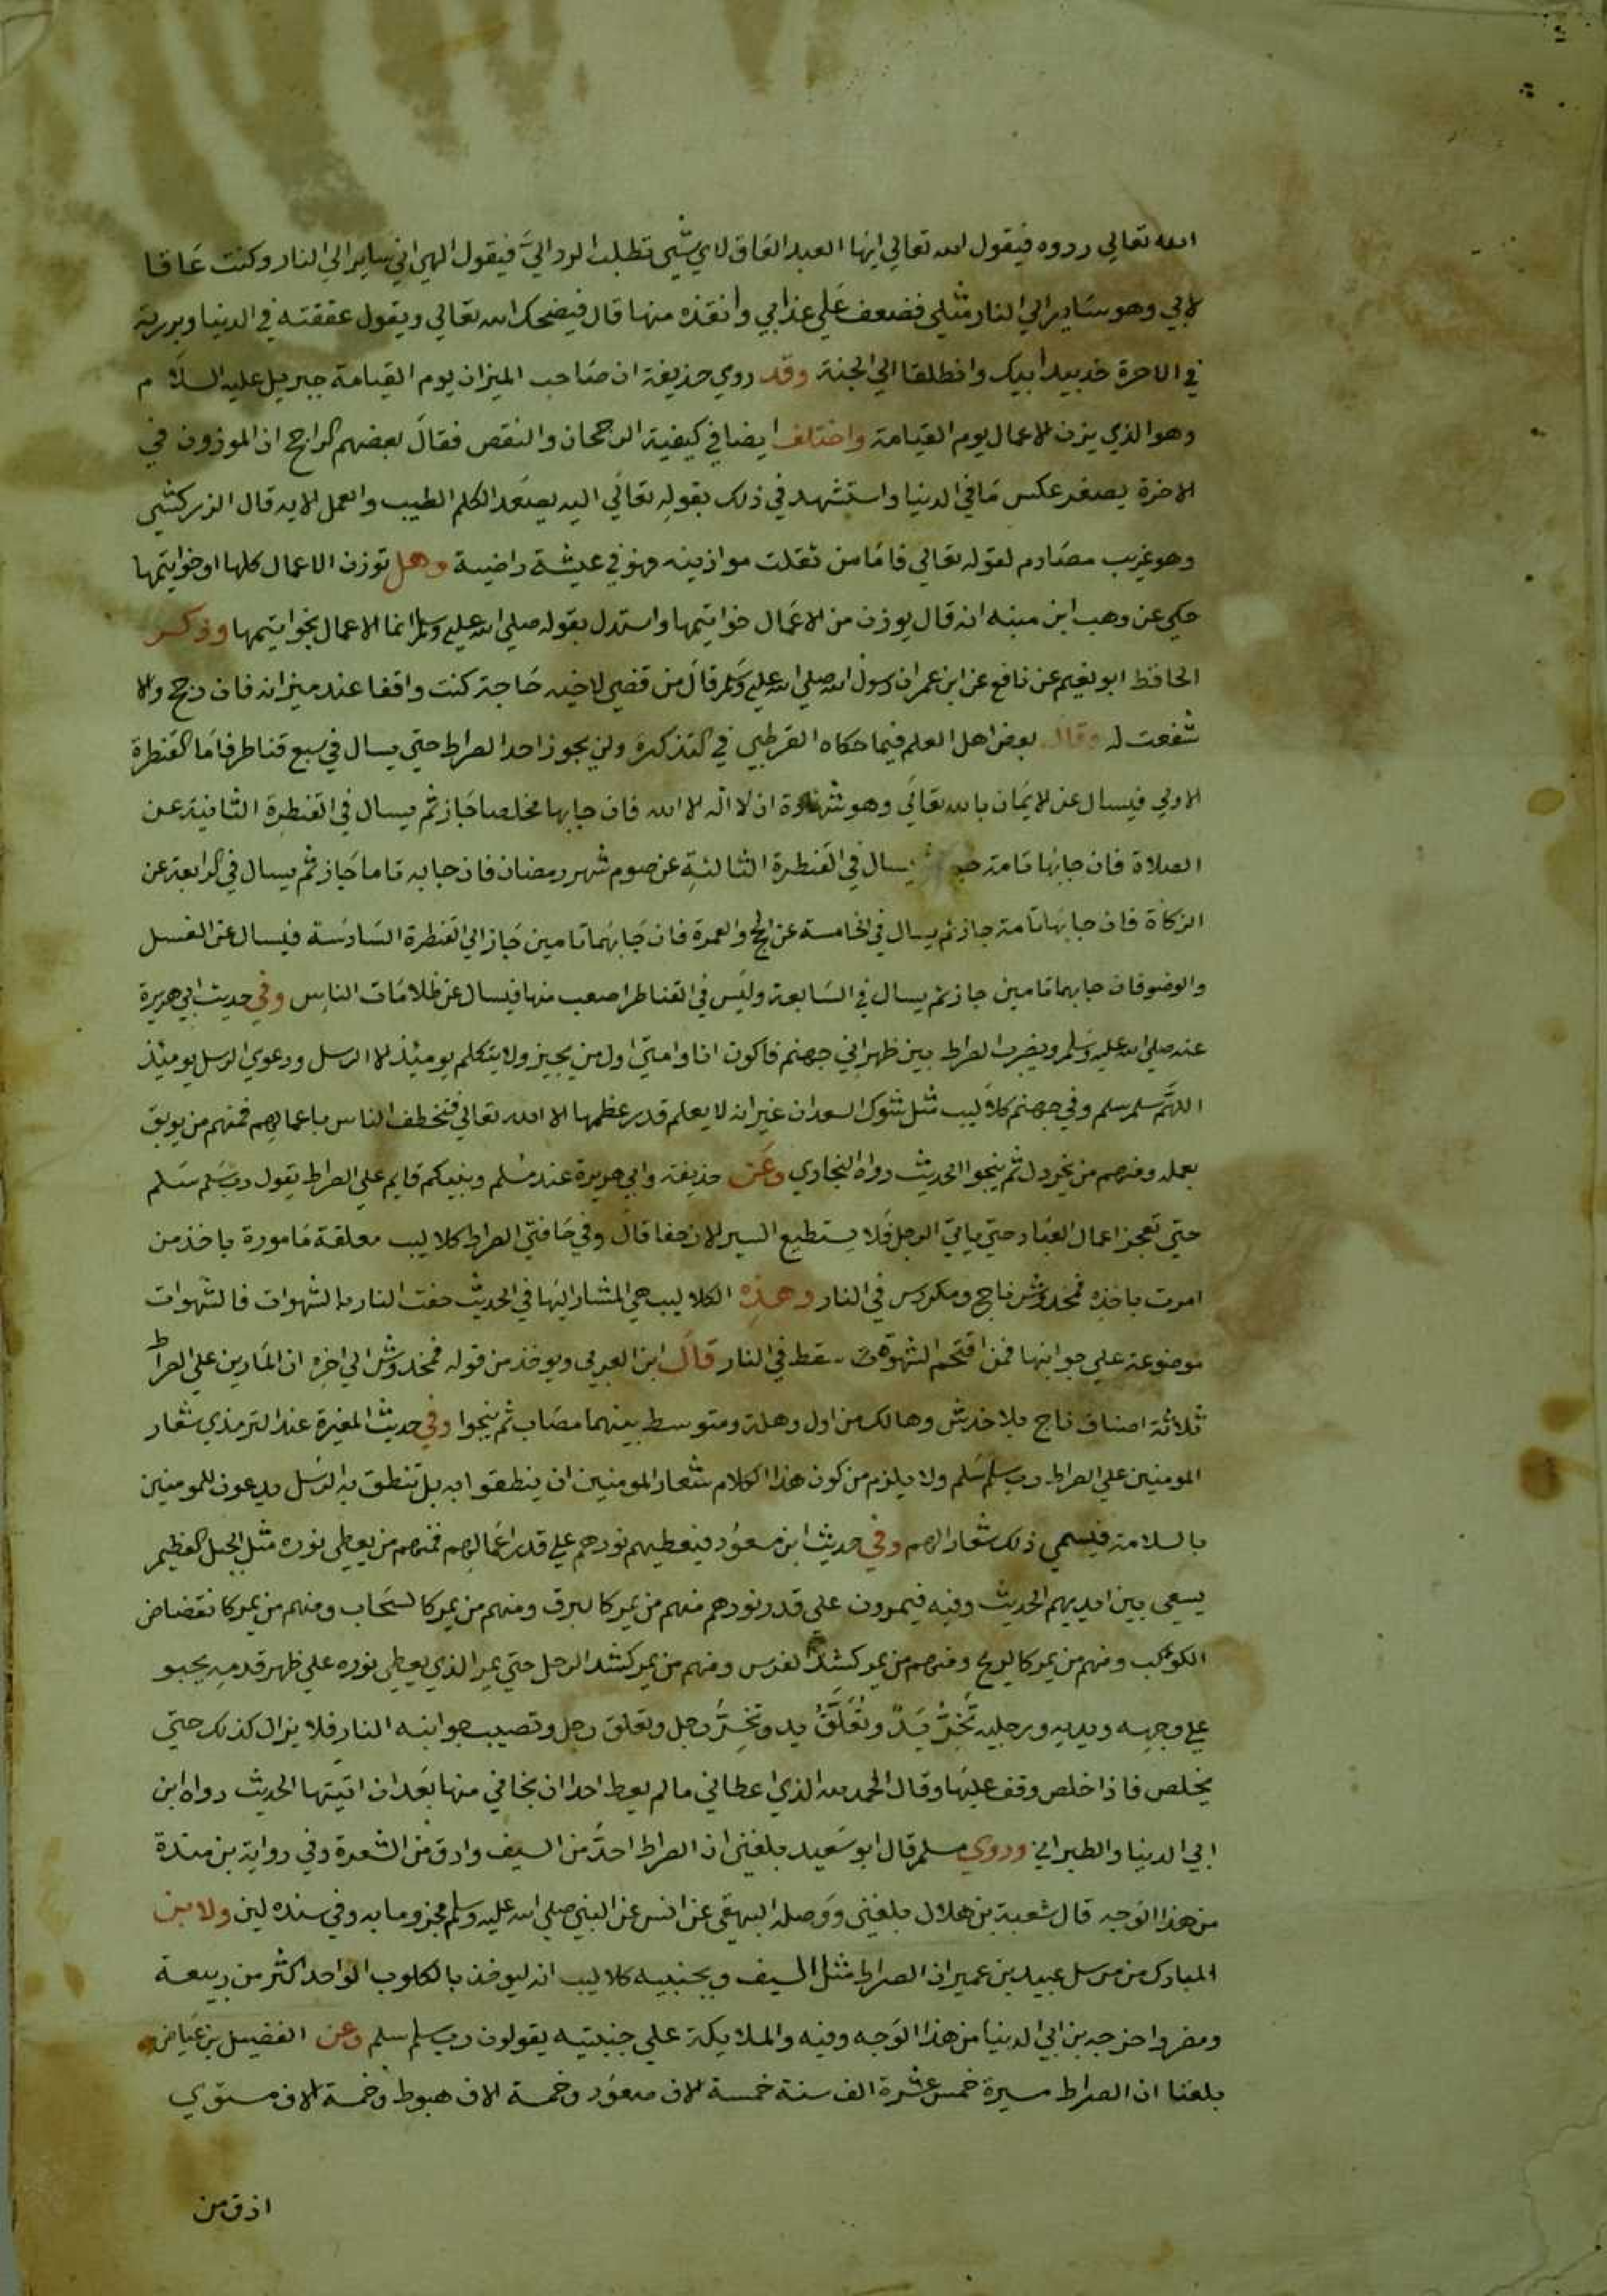 الله تعالي ردوه فيقول الله تعالي ايها العبد العاق لاي شيي تطلب الرد الي فيقول الهي اني ساير الي النار وكنت عاقا
لابي وهو ساير الي النار مثلي فضعف علي عذابي وانقذه منها قال فيضحك الله تعالي ويقول عققته في الدنيا وبررته
في الاخرة خذ بيد ابيك وانطلقا الي الجنة وقد روي حذيفة ان صاحب الميزان يوم القيامة جبريل عليه السلام
وهو الذي يزن الاعمال يوم القيامة واختلف ايضا في كيفية الرجحان والنقص فقال بعضهم الراجح ان الموزون في
الاخرة يصعد عكس ما في الدنيا واستشهد في ذلك بقوله تعالي اليه يصعد الكلم الطيب والعمل الايه قال الزركشي
وهو غريب مصادم لقوله تعالي فاما من ثقلت موازينه فهو في عيشة راضية وهل توزن الاعمال كلها او خواتيمها
حكي عن وهب ابن منبه انه قال يوزن من الاعمال خواتيمها واستدل بقوله صلي الله عليه وسلم انما الاعمال بخواتيمها وذكر
الحافظ ابو نعيم عن نافع عن ابن عمر ان رسول الله صلي الله عليه وسلم قال من قضي لاخيه حاجة كنت واقفا عند ميزانه فان رجح والا
شفعت له وقال بعض اهل العلم فيما حكاه القرطبي في التذكرة ولن يجوز احد الصراط حتي يسال في سبع قناطر فاما القنطرة
الاولي فيسال عن الايمان بالله تعالي وهو شهادة ان لا اله الا الله فان جابها مخلصا جاز ثم يسال في القنطرة الثانية عن
الصلاة فان جابها تامة يسال في القنطرة الثالثة عن صوم شهر رمضان فان جابه تاما جاز ثم يسال في الرابعة عن
الزكاة فان جابها تامة جاز ثم يسال في الخامسة عن الحج والعمرة فان جابهما تامين جاز الي القنطرة السادسة فيسال عن الغسل
والوضو فان جابهما تامين جاز ثم يسال في السابعة وليس في القناطر اصعب منها فيسال عن ظلامات الناس وفي حديث ابي هريرة
عنه صلي الله عليه وسلم ويضرب الصراط بين ظهراني جهنم فاكون انا وامتي اول من يجيز ولا يتكلم يوميذ الا الرسل ودعوي الرسل يوميذ
اللهم سلم سلم وفي جهنم كلاليب مثل شوك السعدان غير انه لا يعلم قدر عظمها الا الله تعالي فتخطف الناس باعمالهم فمنهم من يوبق
بعمله ومنهم من يخردل ثم ينجوا الحديث رواه البخاري وعن حذيفة وابي هريرة عند مسلم ونبيكم قايم علي الصراط يقول رب سلم سلم
حتي تعجز اعمال العباد حتي ياتي الرجل فلا يستطيع السير الا زحفا قال وفي حافتي الصراط كلاليب معلقة مامورة باخذ من
امرت باخذه فمخدوش ناج ومكردس في النار وهذه الكلاليب هي المشار اليها في الحديث حفت النار بالشهوات فالشهوات
موضوعة علي جوانبها فمن اقتحم الشهوة سقط في النار قال ابن العربي ويوخذ من قوله فمخدوش الي اخره ان المارين علي الصراط
ثلاثة اصناف ناج بلا خدش وهالك من اول وهلة ومتوسط بينهما مصاب ثم ينجوا وفي حديث المغيرة عند الترمذي شعار
المومنين علي الصراط رب سلم سلم ولا يلزم من كون هذا الكلام شعار المومنين ان ينطقوا به بل تنطق به الرسل يدعون للمومنين
بالسلامة فيسمي ذلك شعارا لهم وفي حديث ابن مسعود فيعطيهم نورهم علي قدر اعمالهم فمنهم من يعطي نوره مثل الجبل العظيم
يسعي بين ايديهم الحديث وفيه فيمرون علي قدر نورهم منهم من يمر كالبرق ومنهم من يمر كالسحاب ومنهم من يمر كانقضاض
الكوكب ومنهم من يمر كالريح ومنهم من يمر كشد الفرس ومنهم من يمر كشد الرجل حتي يمر الذي يعطي نوره علي ظهر قدميه يحبو
علي وجهه ويديه ورجليه تخر يد وتعلق يد وتخر رجل وتعلق رجل وتصيب جوانبه النار فلا يزال كذلك حتي
يخلص فاذا خلص وقف عليها وقال الحمد لله الذي اعطاني ما لم يعط احدا ان نجاني منها بعد ان اتيتها الحديث رواه ابن
ابي الدنيا والطبراني وروي مسلم قال ابو سعيد بلغني ان الصراط احد من السيف وادق من الشعرة وفي رواية بن مندة
من هذا الوجه قال شعبة بن هلال بلغني ووصله البيهقي عن انس عن النبي صلي الله عليه وسلم مجزوما به وفي سنده لين ولابن
المبارك من مرسل عبيد بن عمير ان الصراط مثل السيف وبجنبيه كلاليب انه ليوخذ بالكلوب الواحد اكثر من ربيعة
ومضر واخرجه بن ابي الدنيا من هذا الوجه وفيه والملايكة علي جنبتيه يقولون رب سلم سلم وعن الفضيل بن عياض
بلغنا ان الصراط مسيرة خمس عشرة الف سنة خمسة الاف صعود وخمسة الاف هبوط وخمسة الاف مستوي
ادق من